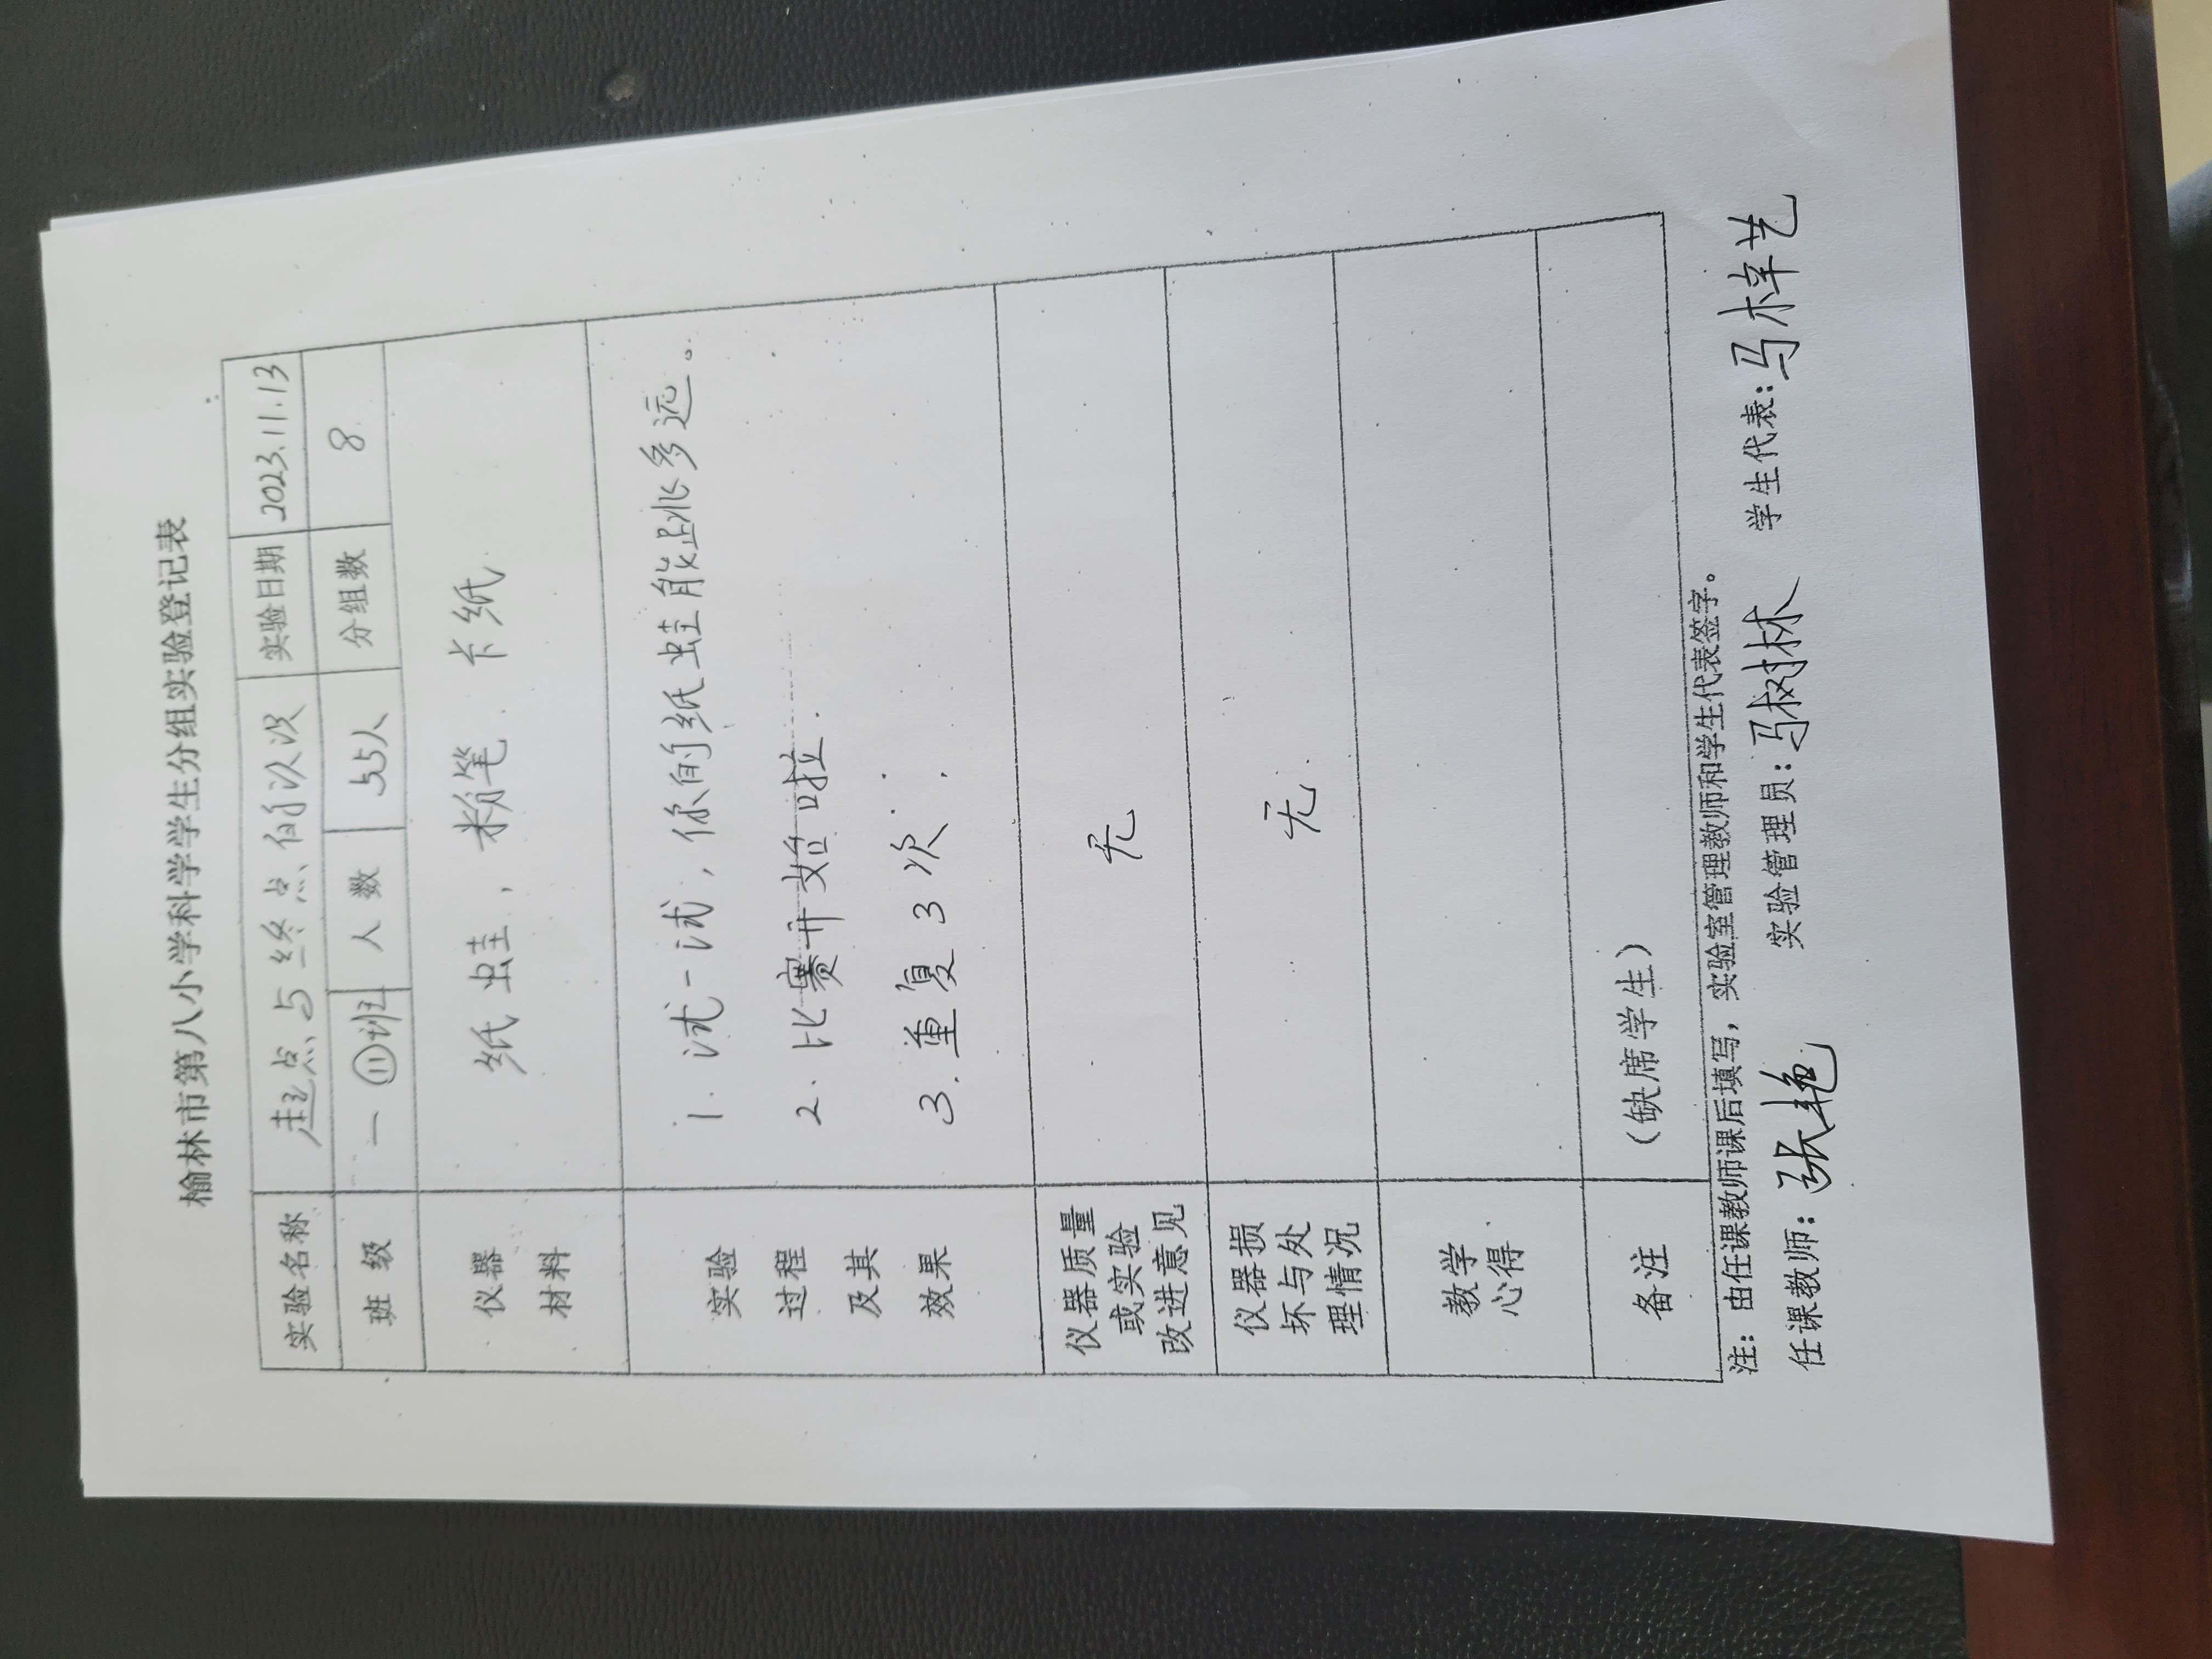 榆林市第八小学科学学生分组实验登记表
实验名称 起点与终点 实验日期 2023.11.13
班级 一⑪班 人数 55人 分组数 8
仪器材料 纸虫蛙，粉笔、卡纸
实验过程及其效果
1. 试一试，你的纸虫蛙能跳多远。
2. 比赛开始啦.
3. 重复3次.
仪器质量或实验改进意见 无
仪器损坏与处理情况 无.
教学心得
备注 （缺席学生）
注：由任课教师课后填写，实验室管理教师和学生代表签字。
任课教师：张艳 实验管理员：马树林 学生代表：马梓艺